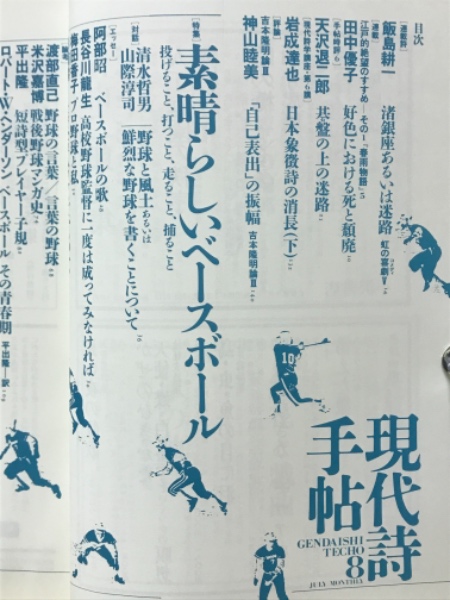 目次
[連載詩]
飯島耕一 渚銀座あるいは迷路 虹の喜劇V
[連載]
江戸的絶望のすすめ—その1「春雨物語」5
田中優子 好色における死と頽廃
[手帖時評6]
天沢退二郎 基盤の上の迷路
[現代詩学講座・第6講]
岩成達也 日本象徴詩の消長(下)
[評論]
神山睦美 「自己表出」の振幅 吉本隆明論Ⅱ
吉本隆明論Ⅱ
[特集]
素晴らしいベースボール
投げること、打つこと、走ること、捕ること
[対談]
清水哲男
山際淳司
野球と風土あるいは
鮮烈な野球を書くことについて
[エッセー]
阿部昭 ベースボールの歌
長谷川龍生 高校野球監督に一度は成ってみなければ
梅田香子 プロ野球と私
渡部直己 野球の言葉/言葉の野球
米沢嘉博 戦後野球マンガ史
平出隆 短詩型プレイヤー子規
ロバート・W・ヘンダーソン ベースボール その青春期 平出隆—訳
10
現代詩
手帖
GENDAISHI
TECHO
8
JULY MONTHLY